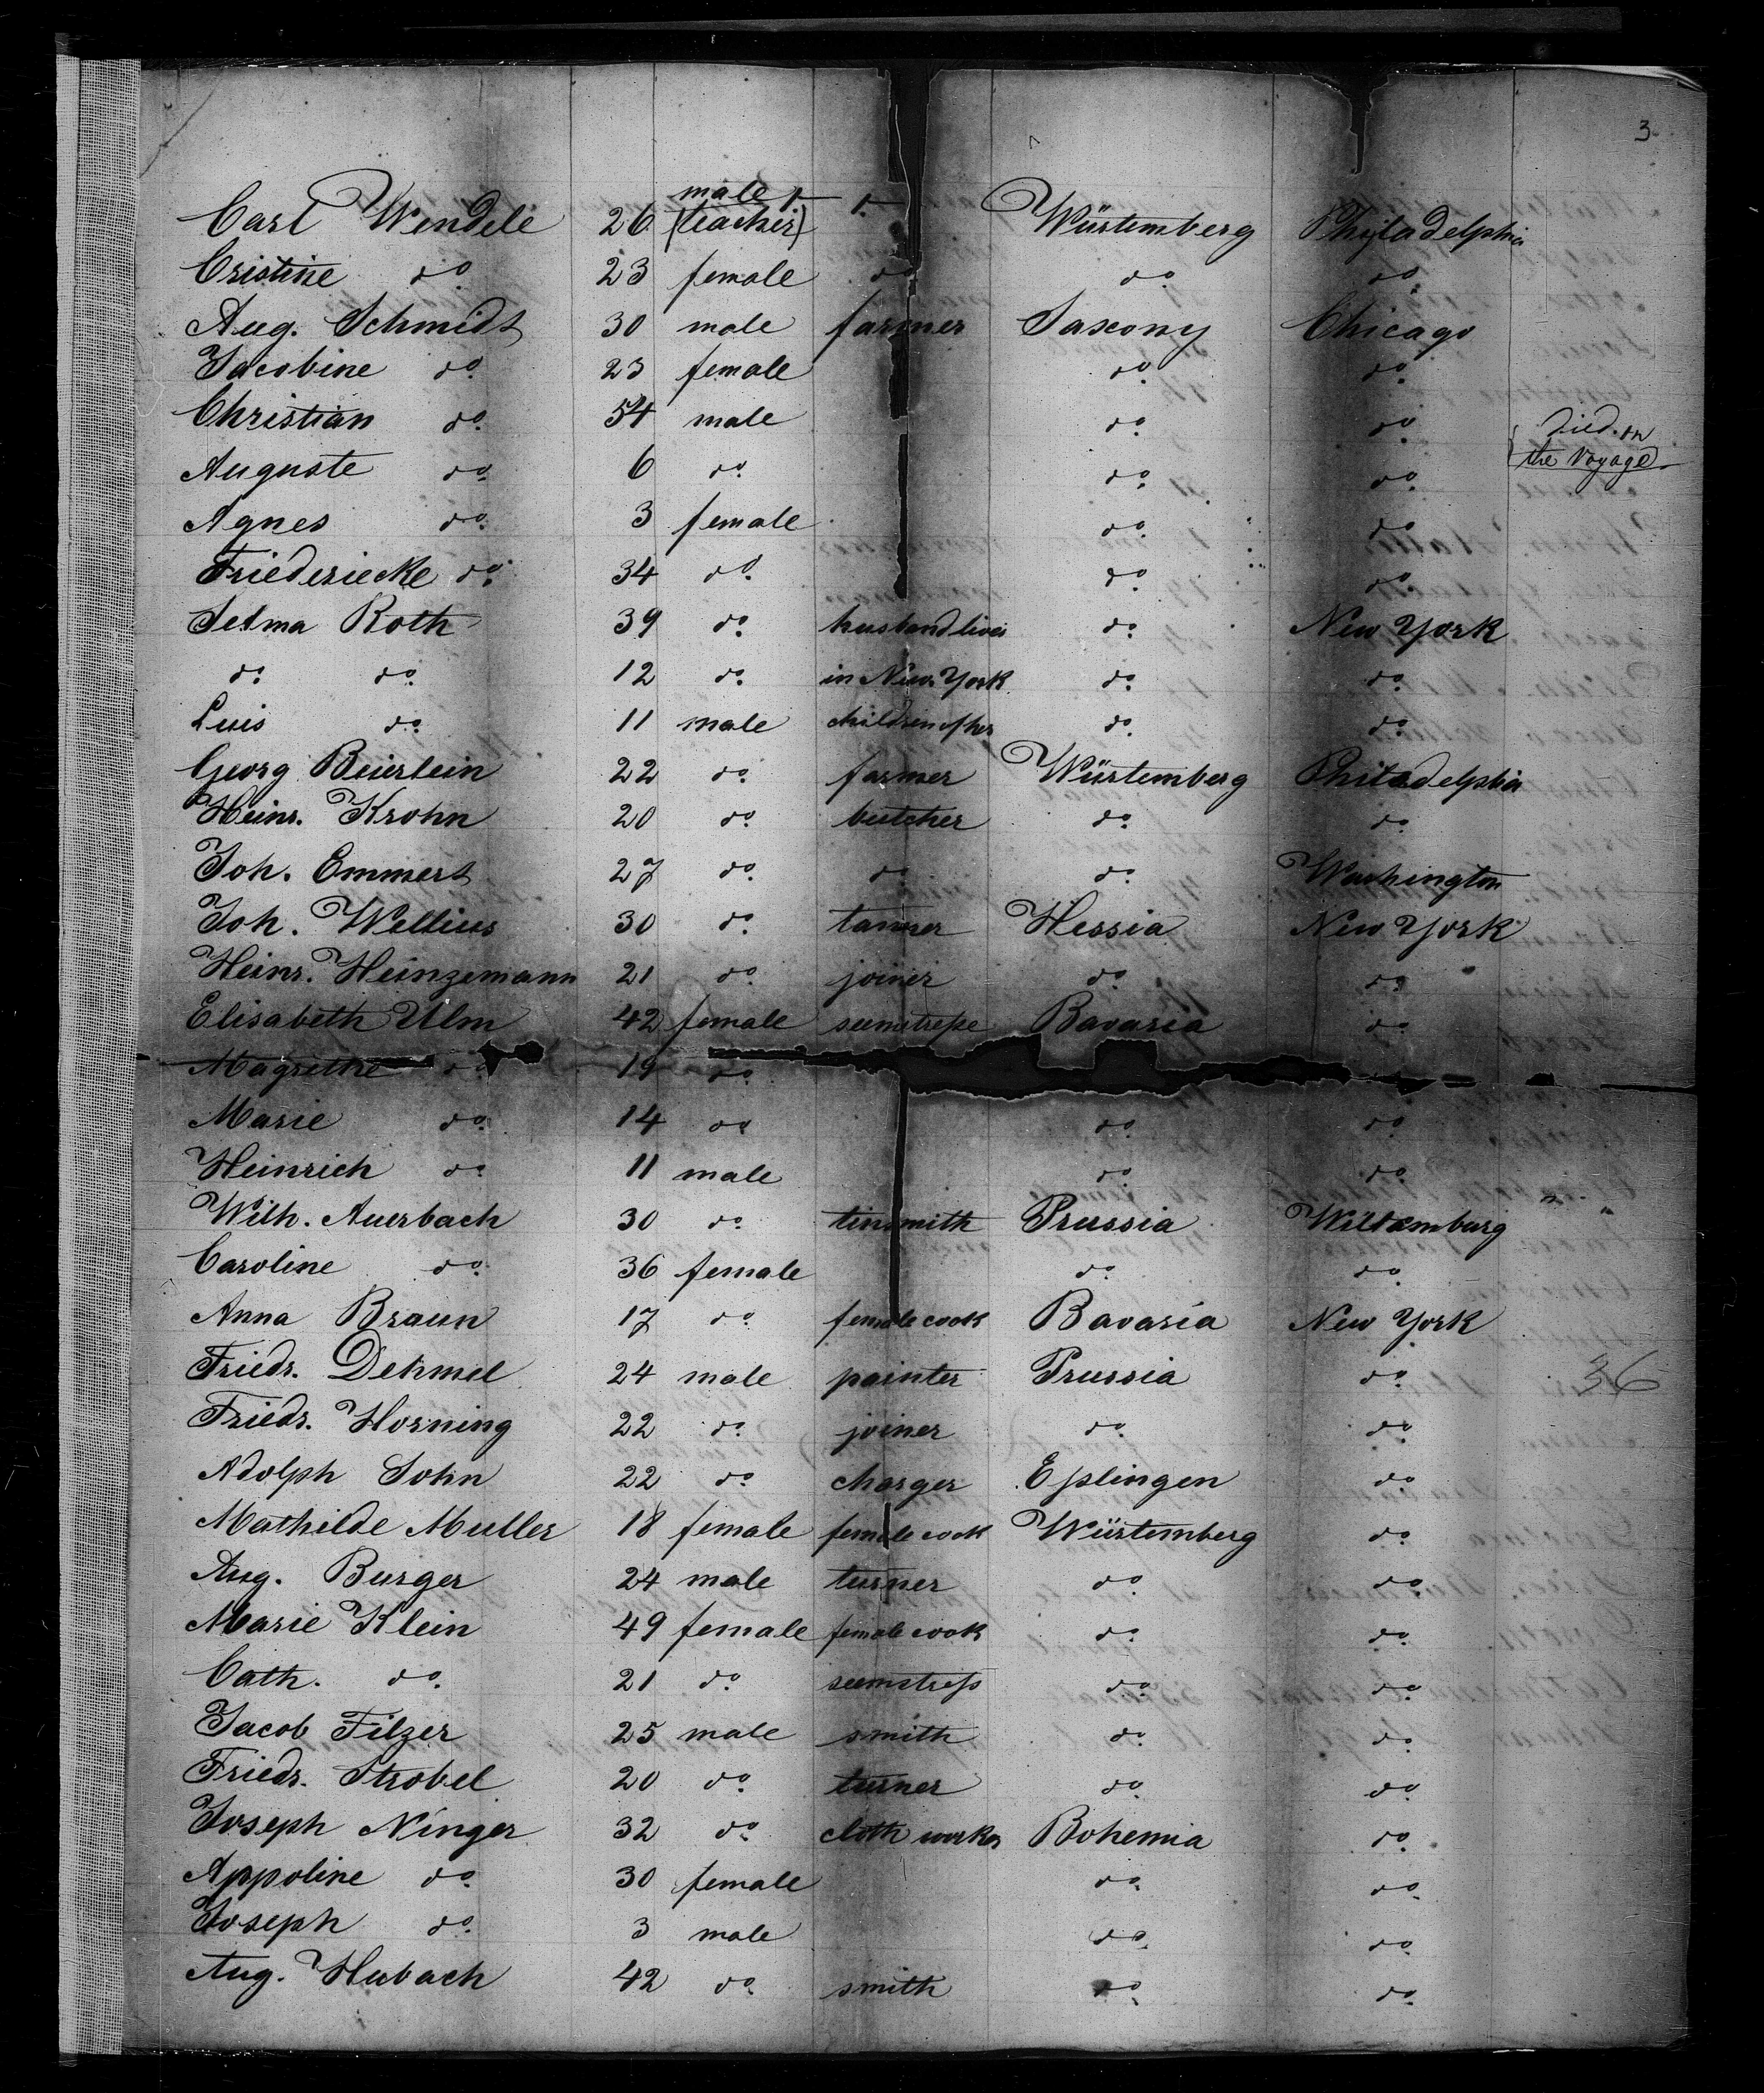 3
male
Carl Wendele 26 (teacher) Würtemberg Philadelphia
Cristine do 23 female do do do
Aug. Schmidt 30 male farmer Saxony Chicago
Jacobine do 23 female do do
Christian do 54 male do do died on
Auguste do 6 do do do the Voyage
Agnes do 3 female do do
Friederiecke do 34 do do do
Selma Roth 39 do husband lives do New York
do do 12 do in New York do do
Luis do 11 male children of her do do
Georg Beierlein 22 do farmer Würtemberg Philadelphia
Heinr. Krohn 20 do butcher do do
Joh. Emmert 27 do do do Washington
Joh. Wellius 30 do tanner Hessia New York
Heinr. Heinzemann 21 do joiner do do
Elisabeth Ulm 42 female seemstreſse Bavaria do
Magrethe do 19 do
Marie do 14 do do do
Heinrich do 11 male do do
Wilh. Auerbach 30 do tinsmith Prussia Wiltemburg
Caroline do 36 female do do
Anna Braun 17 do female cook Bavaria New York
Friedr. Dehmel 24 male painter Prussia do 36
Friedr. Horning 22 do joiner do do
Adolph Sohn 22 do charger Eſslingen do
Mathilde Muller 18 female female cook Würtemberg do
Aug. Burger 24 male turner do do
Marie Klein 49 female female cook do do
Cath. do 21 do seemstreſs do do
Jacob Filzer 25 male smith do do
Friedr. Strobel 20 do turner do do
Joseph Ninger 32 do cloth worker Bohemia do
Appoline do 30 female do do
Joseph do 3 male do do
Aug. Hubach 42 do smith do do